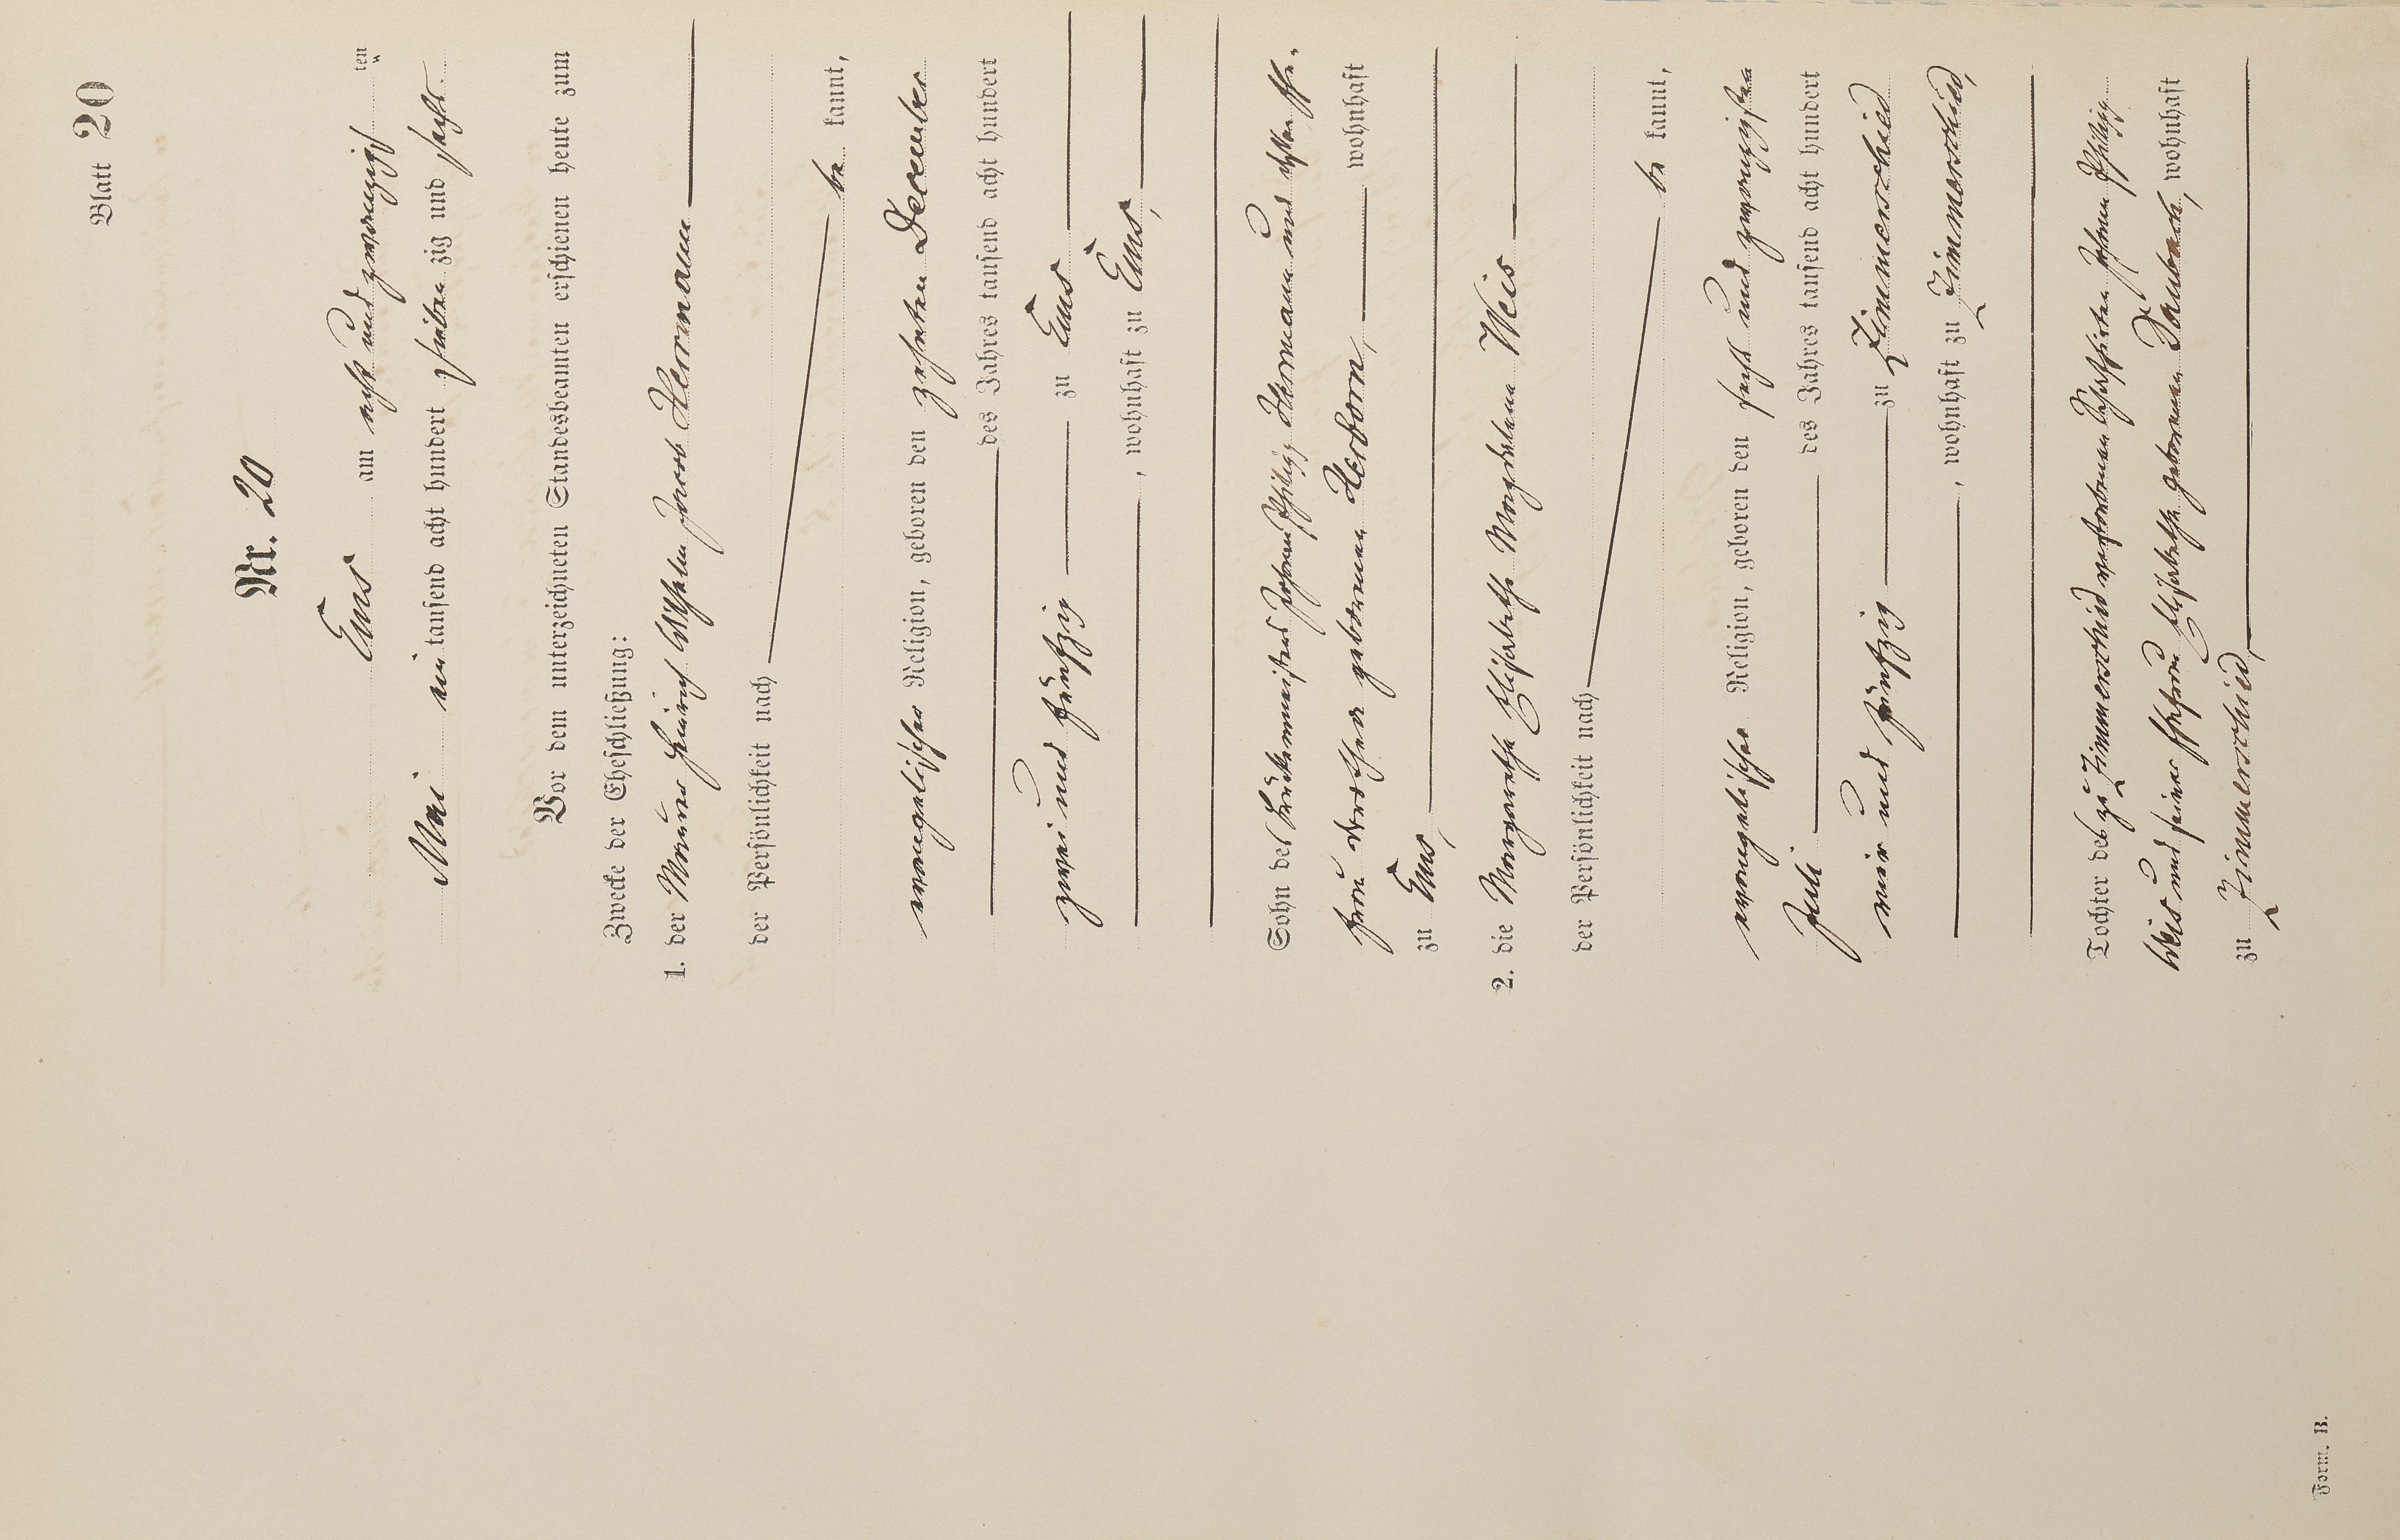 Blatt 20
Nr. 20
Ems am acht und zwanzigs ten
Mai ein tausend acht hundert sieben zig und sechs
Vor dem unterzeichneten Standesbeamten erschienen heute zum
Zwecke der Eheschließung:
1. der Maurer Heinrich Wilhelm Jacob Hermann
der Persönlichkeit nach
be kannt,
evangelischer Religion, geboren den zehnten December
des Jahres tausend acht hundert
zwei und fünfzig zu Ems
, wohnhaft zu Ems,
Sohn des Johann Philipp Hermann und dessen Ehe-
frau Dorothea geborenen Herborn, wohnhaft
zu Ems,
2. die Margarethe Elisabeth Magdalena Weis
der Persönlichkeit nach
be kannt,
evangelischer Religion, geboren den sechs und zwanzigsten
Juli des Jahres tausend acht hundert
vier und fünfzig zu Zimmerschied
, wohnhaft zu Zimmerschied,
Tochter des zu Zimmerschied verstorbenen Johann Philipp
Weis und seiner Ehefrau Elisabethe geborenen Daubach, wohnhaft
zu Zimmerschied,
Form. B.